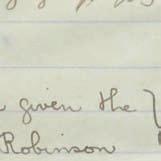 given the
Robinson